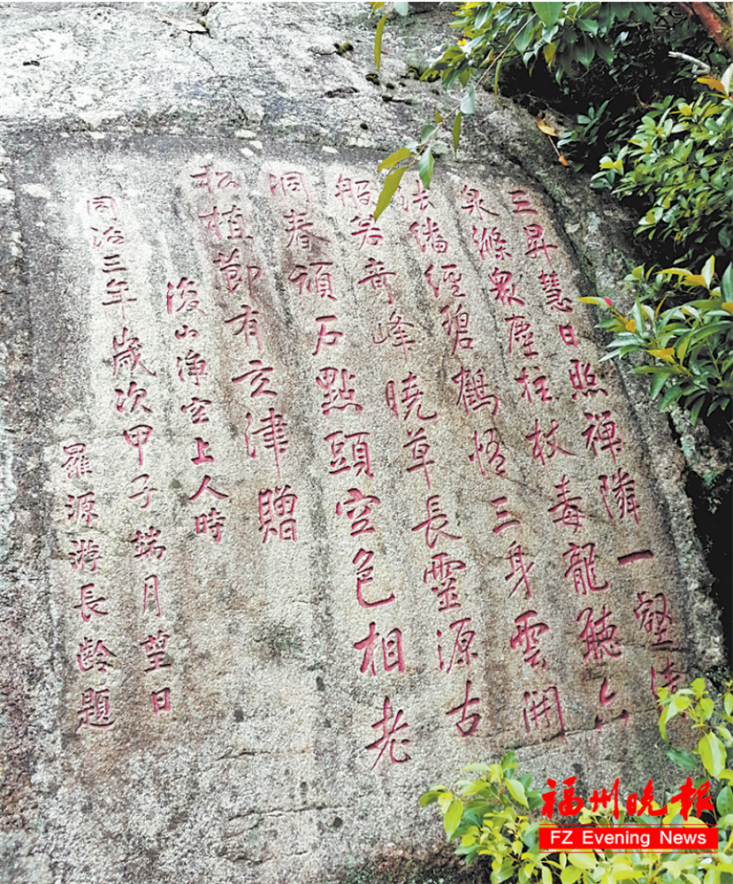 三昇慧日照禪隣一壑清
泉滌衆塵拄杖毒龍聽六
法繙經碧鶴悟三身雲開
般若奇峰曉草長靈源古
洞春頑石點頭空色相老
松植節有玄津贈
後山淨空上人時
同治三年歲次甲子端月望日
羅源游長齡題
福州晚报
FZ Evening News